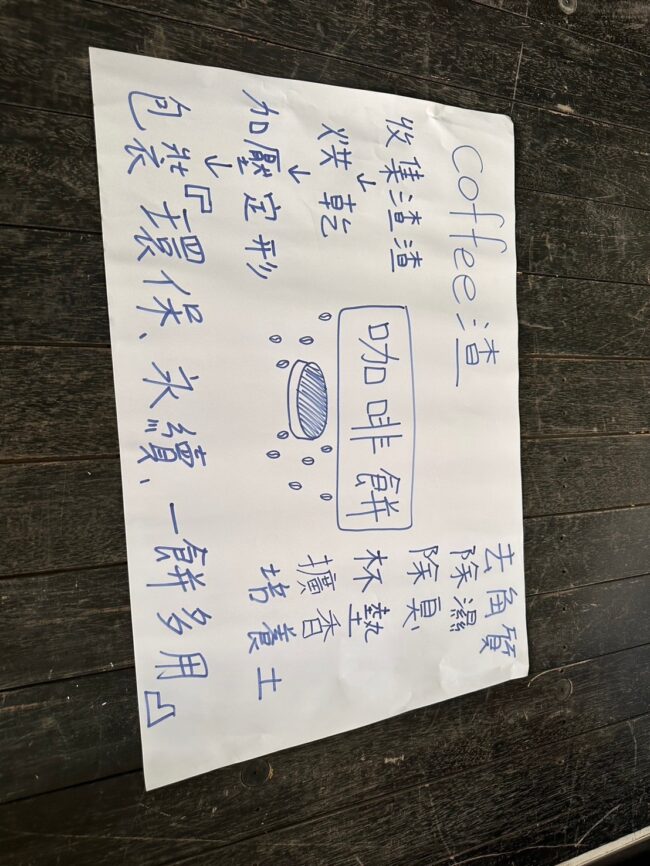 coffee渣
收集渣渣
↓
烘乾
↓
加壓定形
↓
包裝
咖啡餅
去角質
除濕
除臭、
杯墊
擴香
培養土
『環保、永續、一餅多用』